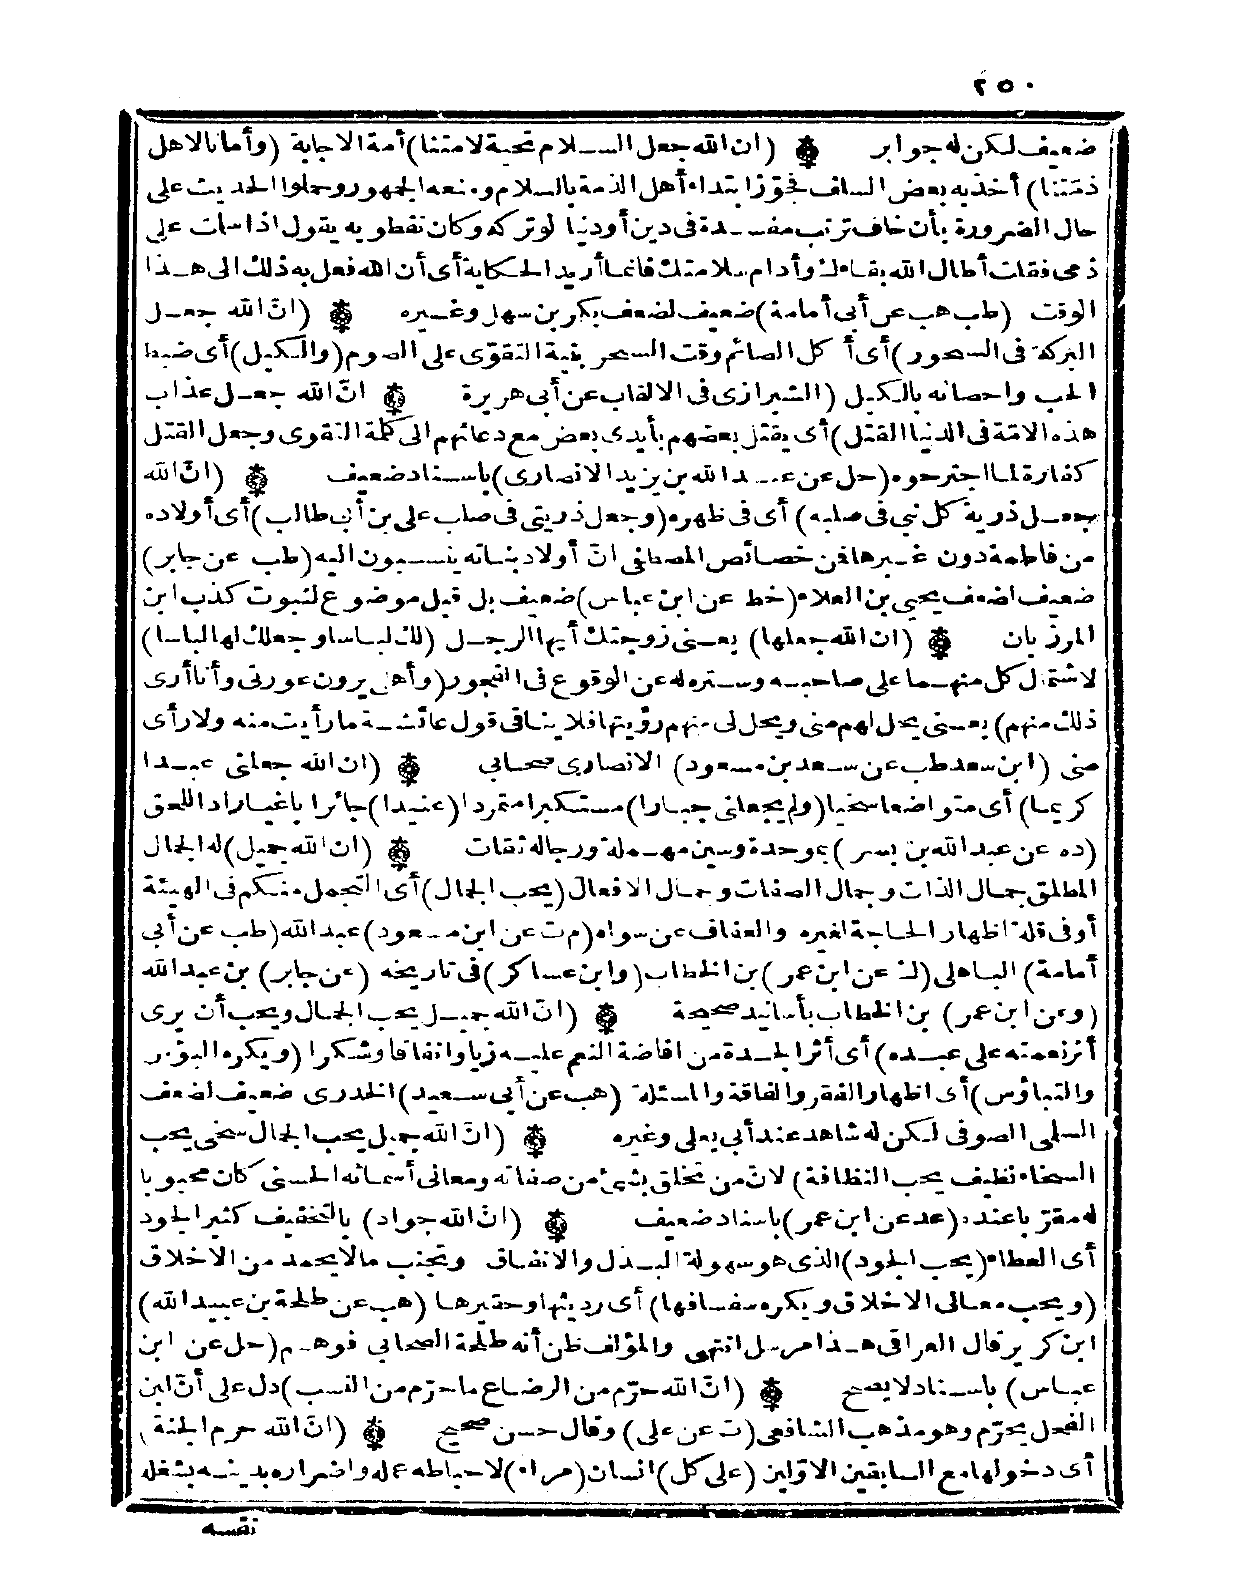 ٢٥٠
ضعيف لكن له جوابر ۞ (ان الله جعل السلام تحية لامتنا) أمة الاجابة (وأمانا لاهل
ذمتنا) أخذ به بعض السلف فجوّز ابتداء أهل الذمة بالسلام ومنعه الجمهور وحملوا الحديث على
حال الضرورة بأن خاف ترتب مفسدة فى دين أو دنيا لو تركه وكان نفطويه يقول اذا سلمت على
ذمى فقلت أطال الله بقاءك وأدام سلامتك فانما أريد الحكاية أى أن الله فعل به ذلك الى هذا
الوقت (طب هب عن أبى أمامة) ضعيف لضعف بكر بن سهل وغيره ۞ (انّ الله جعل
البركة فى السحور) أى أكل الصائم وقت السحر بنية التقوّى على الصوم (والكيل) أى ضبط
الحب واحصائه بالكيل (الشيرازى فى الالقاب عن أبى هريرة ۞ انّ الله جعل عذاب
هذه الامة فى الدنيا القتل) أى يقتل بعضهم بأيدى بعض مع دعائهم الى كلمة التقوى وجعل القتل
كفارة لما اجترحوه (حل عن عبد الله بن يزيد الانصارى) باسناد ضعيف ۞ (انّ الله
جعل ذرية كل نبى فى صلبه) أى فى ظهره (وجعل ذريتى فى صلب على بن أبى طالب) أى أولاده
من فاطمة دون غيرها فمن خصائص المصطفى انّ أولاد بناته ينسبون اليه (طب عن جابر)
ضعيف لضعف يحيى بن العلاء (خط عن ابن عباس) ضعيف بل قيل موضوع لثبوت كذب ابن
المرزبان ۞ (ان الله جعلها) يعنى زوجتك أيها الرجل (لك لباسا وجعلك لها لباسا)
لاشتمال كل منهما على صاحبه وستره له عن الوقوع فى الفجور (وأهلى يرون عورتى وأنا أرى
ذلك منهم) يعنى يحل لهم منى ويحل لى منهم رؤيتها فلا ينافى قول عائشة ما رأيت منه ولا رأى
منى (ابن سعد طب عن سعد بن مسعود) الانصارى صحابى ۞ (ان الله جعلنى عبدا
كريما) أى متواضعا سخيا (ولم يجعلنى جبارا) مستكبرا متمردا (عنيدا) جائرا باغيا رادا للحق
(د ه عن عبد الله بن بسر) بموحدة وسين مهملة ورجاله ثقات ۞ (ان الله جميل) له الجمال
المطلق جمال الذات وجمال الصفات وجمال الافعال (يحب الجمال) أى التجمل منكم فى الهيئة
أو فى قلة اظهار الحاجة لغيره والعفاف عن سواه (م ت عن ابن مسعود) عبد الله (طب عن أبى
أمامة) الباهلى (ك عن ابن عمر) بن الخطاب (وابن عساكر) فى تاريخه (عن جابر) بن عبد الله
(وعن ابن عمر) بن الخطاب بأسانيد صحيحة ۞ (انّ الله جميل يحب الجمال ويحب أن يرى
أثر نعمته على عبده) أى أثر الجدة من افاضة النعم عليه زيا وانفاقا وشكرا (ويكره البؤس
والتباؤس) أى اظهار الفقر والفاقة والمسئلة (هب عن أبى سعيد) الخدرى ضعيف لضعف
السلمى الصوفى لكن له شاهد عند أبى يعلى وغيره ۞ (انّ الله جميل يحب الجمال سخى يحب
السخاء نظيف يحب النظافة) لانّ من تخلق بشئ من صفاته ومعانى أسمائه الحسنى كان محبوبا
له مقرّبا عنده (عد عن ابن عمر) باسناد ضعيف ۞ (انّ الله جواد) بالتخفيف كثير الجود
أى العطاء (يحب الجود) الذى هو سهولة البذل والانفاق وتجنب ما لا يحمد من الاخلاق
(ويحب معالى الاخلاق ويكره سفسافها) أى رديئها وحقيرها (هب عن طلحة بن عبيد الله)
ابن كريز قال العراقى هذا مرسل انتهى والمؤلف ظن أنه طلحة الصحابى فوهم (حل عن ابن
عباس) باسناد لا يصح ۞ (انّ الله حرّم من الرضاع ما حرّم من النسب) دل على أنّ لبن
الفحل يحرّم وهو مذهب الشافعى (ت عن على) وقال حسن صحيح ۞ (انّ الله حرم الجنة)
أى دخولها مع السابقين الاوّلين (على كل) انسان (مراء) لاحباطه عمله واضراره بدينه بشغله
نفسه